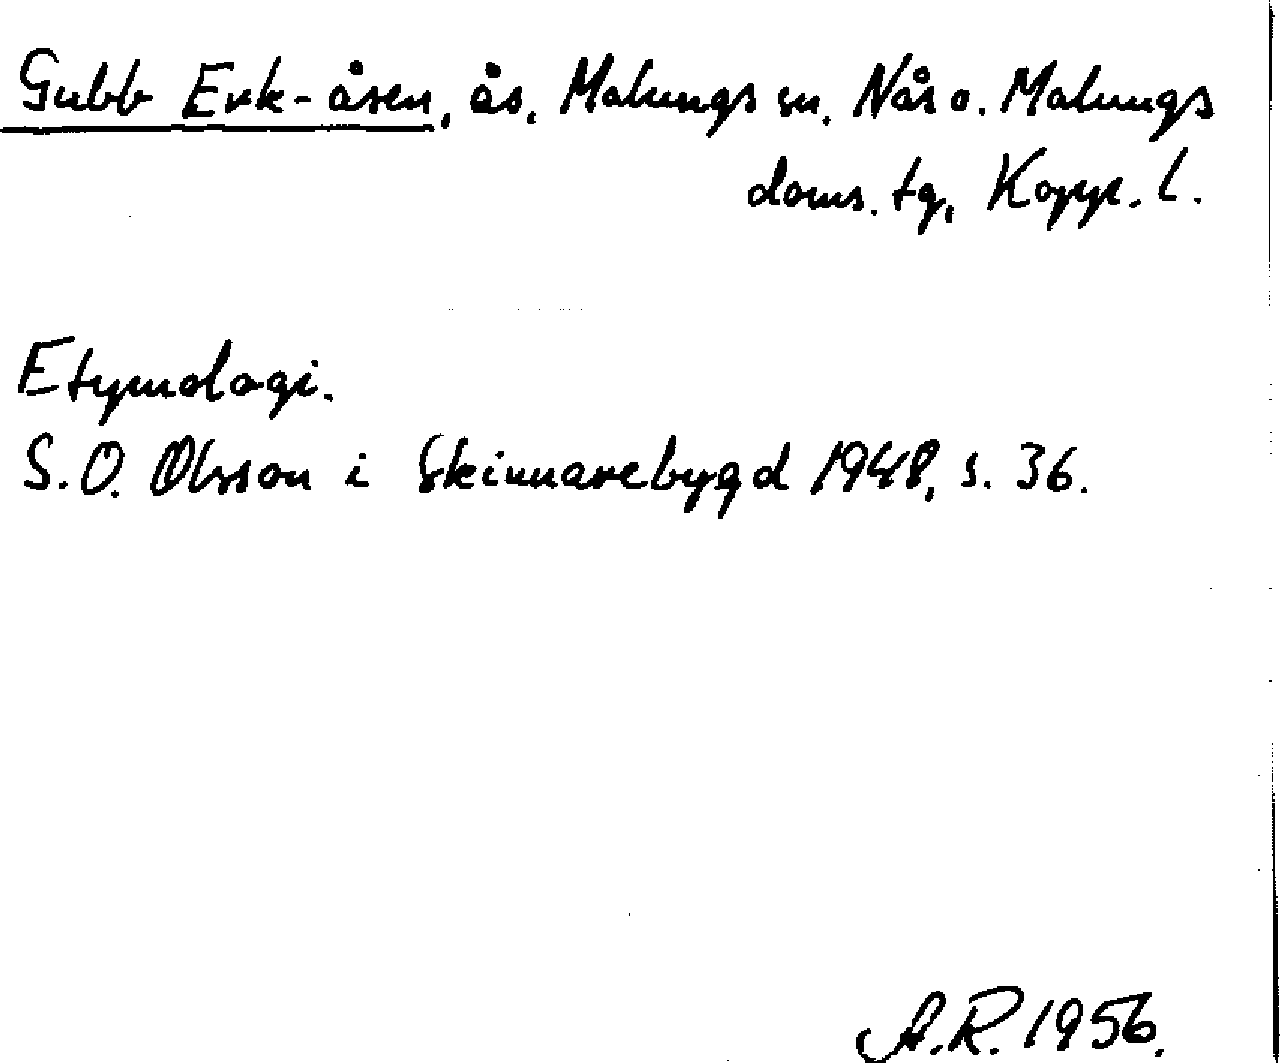 Gubb Erk-åsen, ås, Malungs sn. Nås o. Malungs
doms. tg, Kopp. l.
Etymologi.
S. O. Olsson i Skinnarebygd 1948, s. 36.
A. R. 1956.